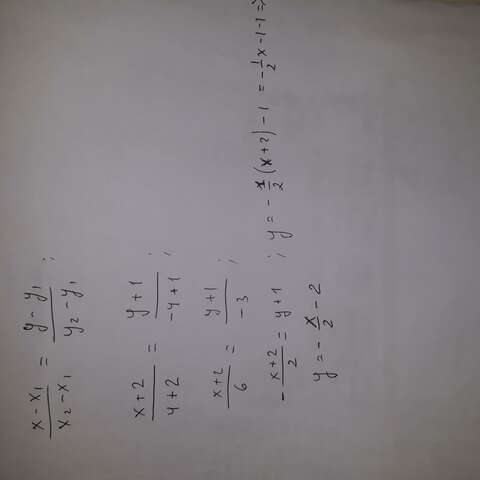 (x - x₁)/(x₂ - x₁) = (y - y₁)/(y₂ - y₁) ;
(x + 2)/(4 + 2) = (y + 1)/(-4 + 1) ;
(x + 2)/6 = (y + 1)/(-3) ;
-(x + 2)/2 = y + 1 ; y = -x/2 (x + 2) - 1 = -1/2 x - 1 - 1 =>
y = -x/2 - 2